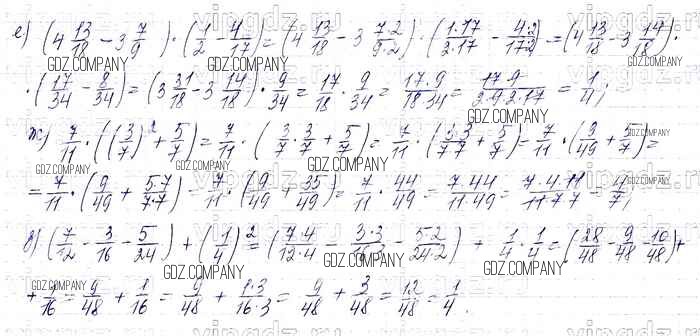 е) (4 13/18 - 3 7/9) · (1/2 - 4/17) = (4 13/18 - 3 7·2/9·2) · (1·17/2·17 - 4·2/17·2) = (4 13/18 - 3 14/18) ·
· (17/34 - 8/34) = (3 31/18 - 3 14/18) · 9/34 = 17/18 · 9/34 = 17·9/18·34 = 17·9/2·9·2·17 = 1/4;
ж) 7/11 · ((3/7)² + 5/7) = 7/11 · (3/7 · 3/7 + 5/7) = 7/11 · (3·3/7·7 + 5/7) = 7/11 · (9/49 + 5/7) =
= 7/11 · (9/49 + 5·7/7·7) = 7/11 · (9/49 + 35/49) = 7/11 · 44/49 = 7·44/11·49 = 7·4·11/11·7·7 = 4/7;
з) (7/12 - 3/16 - 5/24) + (1/4)² = (7·4/12·4 - 3·3/16·3 - 5·2/24·2) + 1/4 · 1/4 = (28/48 - 9/48 - 10/48) +
+ 1/16 = 9/48 + 1/16 = 9/48 + 1·3/16·3 = 9/48 + 3/48 = 12/48 = 1/4.
GDZ.COMPANY
GDZ.COMPANY
GDZ.COMPANY
GDZ.COMPANY
GDZ.COMPANY
GDZ.COMPANY
GDZ.COMPANY
GDZ.COMPANY
GDZ.COMPANY
GDZ.COMPANY
GDZ.COMPANY
GDZ.COMPANY
vipgdz.ru